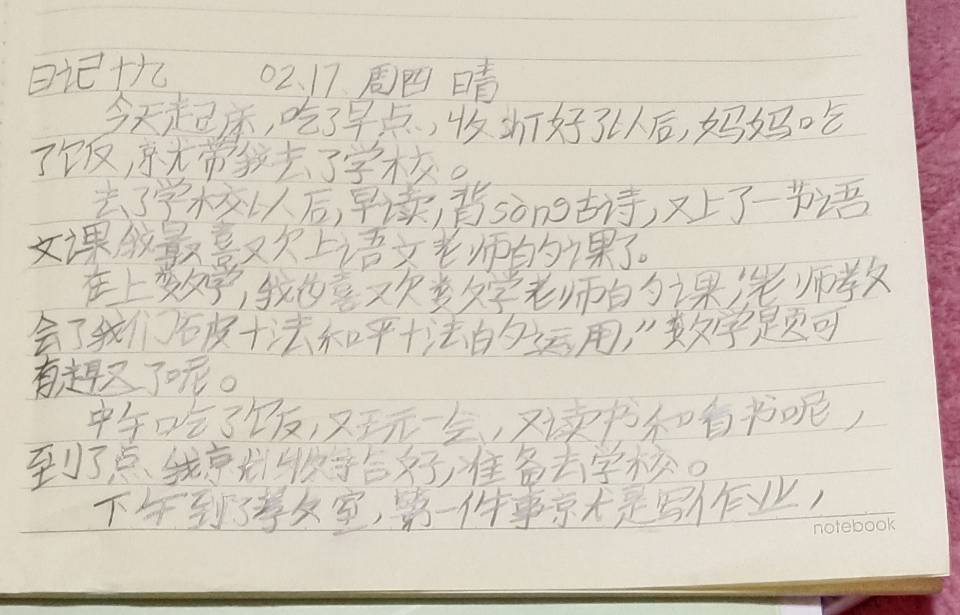 日记十九 02.17 周四 晴
今天起床,吃了早点,收拆好了以后,妈妈吃
了饭,就带我去了学校。
去了学校以后,早读,背sòng古诗,又上了一节语
文课我最喜欢上语文老师的课了。
在上数学,我也喜欢数学老师的课,"老师教
会了我们破十法和平十法的运用,"数学题可
有趣了呢。
中午吃了饭,又玩一会,又读书和看书呢,
到了点、我就收拾好,准备去学校。
下午到了教室,第一件事就是写作业,
notebook